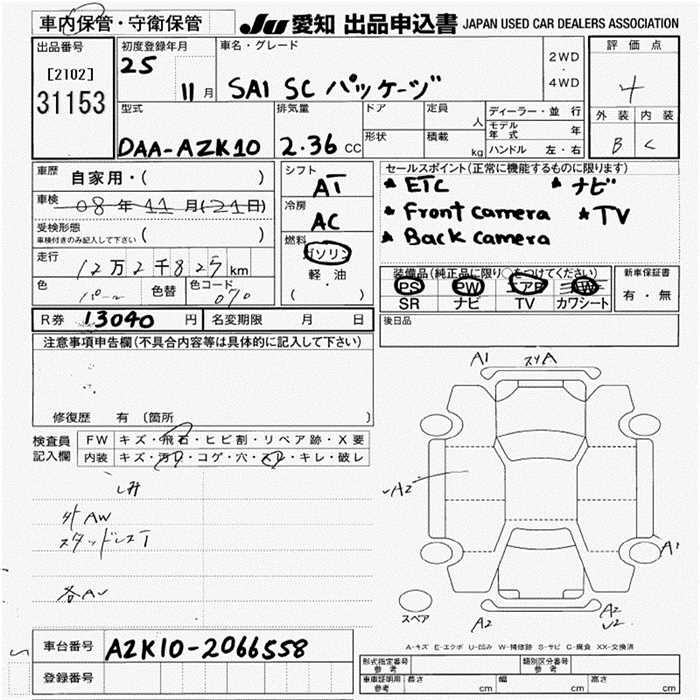 車内保管・守衛保管 JU 愛知 出品申込書 JAPAN USED CAR DEALERS ASSOCIATION
出品番号 初度登録年月 車名・グレード 評価点
[2102] 25 11月 SAI SC パッケージ 2WD・4WD 4
31153
型式 排気量 ドア 定員 人 ディーラー・並行 外装 内装
モデル年式 年
DAA-AZK10 2.36 CC 形状 積載 kg ハンドル 左・右 B C
車歴 自家用・( ) シフト AT セールスポイント(正常に機能するものに限ります)
車検 08年11月(21日) 冷房 AC
★ ETC ★ ナビ
★ Front camera ★ TV
★ Back camera
受検形態 ( )
車検付きのみ記入して下さい
燃料 ガソリン
軽・油
( ・ )
走行 12万2千825km
色 パール 色替 色コード 070
装備品(純正品に限り○をつけてください) 新車保証書
PS PW エアB AW 有・無
SR ナビ TV カワシート
R券 13040円 名変期限 月 日 後日品
注意事項申告欄(不具合内容等は具体的に記入して下さい)
修復歴 有 (箇所 )
検査員記入欄 FW キズ・飛石・ヒビ割・リペア跡・X要
内装 キズ・汚レ・コゲ・穴・スレ・キレ・破レ
外AW
スタッドレスT
A1 スリA
A2
A1
スペア A2 A2
U2
A-キズ E-エクボ U-凹み W-補修跡 S-サビ C-腐食 XX-交換済
車台番号 AZK10-2066558
登録番号
形式指定番号 参考 類別区分番号 参考
車庫証明用 参考 長さ cm 幅 cm 高さ cm